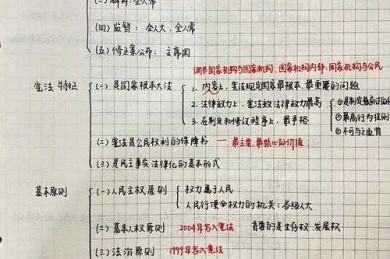 (二)解释:全人常
(四)监督:全人大、全人常
(五)修正案公布:主席团
调节国家机构与国家机构、国家机构内部、国家机构与公民
宪法特征
(一)是国家根本大法
1. 内容上,宪法规定国家最根本、最重要的问题
2. 法律效力上,宪法效法律效力最高
①是制定普通法的
3. 在制定和修改程序上,最严格
②最高行为准则
③不可与之违背
(二)宪法是公民权利的保障书 — 最主要、最核心的价值
(三)是民主事实法律化的基本形式
基本原则
(一)人民主权原则
权力属于人民
人民行使权力的机关:各级人大
(二)基本人权原则 2004年写入宪法 首要的是生存权、发展权
(三)法治原则 1999年写入宪法